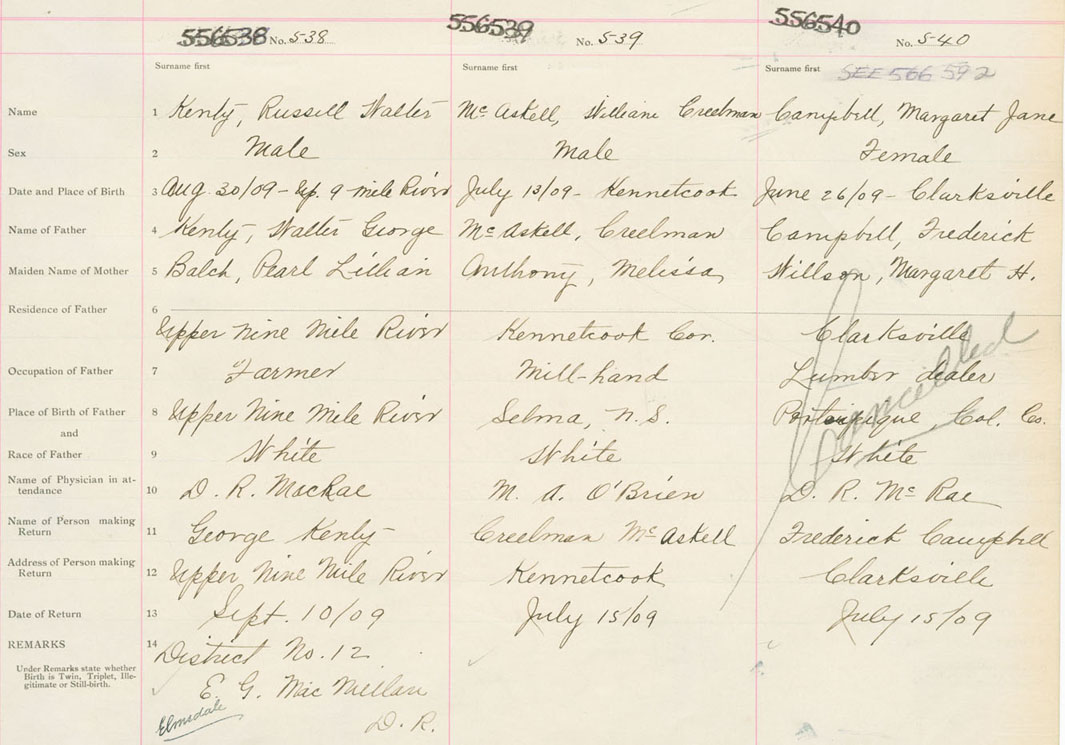 556538 No. 538 556539 No. 539 556540 No. 540
Surname first Surname first Surname first SEE 566 592
Name 1 Kenty, Russell Walter McAskell, William Creelman Campbell, Margaret Jane
Sex 2 Male Male Female
Date and Place of Birth 3 Aug 30/09 - Up. 9 mile River July 13/09 - Kennetcook June 26/09 - Clarksville
Name of Father 4 Kenty, Walter George McAskell, Creelman Campbell, Frederick
Maiden Name of Mother 5 Balch, Pearl Lillian Anthony, Melissa Willson, Margaret H.
Residence of Father 6 Upper Nine Mile River Kennetcook Cor. Clarksville
Occupation of Father 7 Farmer Mill-hand Lumber dealer
Cancelled
Place of Birth of Father 8 Upper Nine Mile River Selma, N.S. Portaupique, Col. Co.
and
Race of Father 9 White White White
Name of Physician in at-
tendance 10 D. R. MacRae M. A. O'Brien D. R. McRae
Name of Person making
Return 11 George Kenty Creelman McAskell Frederick Campbell
Address of Person making
Return 12 Upper Nine Mile River Kennetcook Clarksville
Date of Return 13 Sept. 10/09 July 15/09 July 15/09
REMARKS 14 District No. 12
Under Remarks state whether
Birth is Twin, Triplet, Ille-
gitimate or Still-birth.
E. G. MacMillan
Elmsdale D. R.